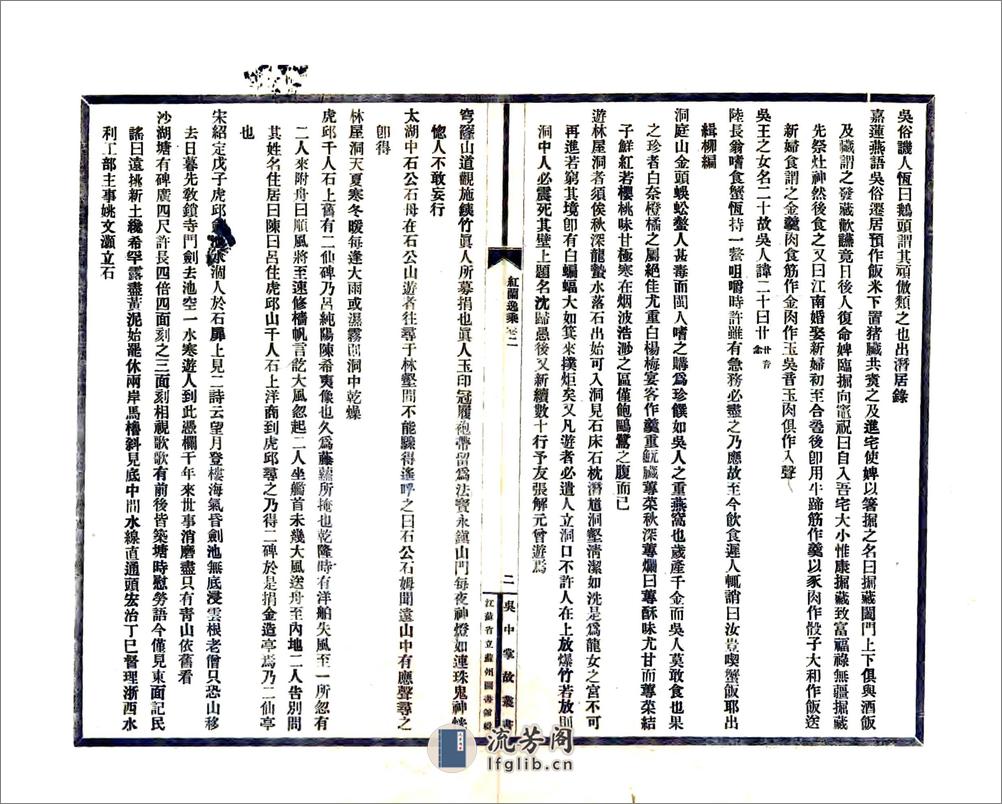 吳俗譏人恆曰鵝頭謂其頑傲類之也出潛居錄
嘉蓮燕語吳俗遷居預作飯米下置猪臟共煑之及進宅使婢以箸掘之名曰掘藏闔門上下俱與酒飯
及臟謂之發藏歡讌竟日後人復命婢臨掘向竈祝曰自入吾宅大小惟康掘藏致富福祿無疆掘藏
先祭灶神然後食之又曰江南婚娶新婦初至合巹後卽用牛蹄筋作羹以豕肉作骰子大和作飯送
新婦食謂之金羹肉食筋作金肉作玉吳音玉肉俱作入聲
吳王之女名二十故吳人諱二十曰廿 廿音念
陸長翁嗜食蟹恆持一螯咀嚼時許雖有急務必盡之乃應故至今飲食遲人輒誚曰汝豈喫蟹飯耶出
緝柳編
洞庭山金頭蜈蚣螫人甚毒而閩人嗜之購爲珍饌如吳人之重燕窩也歲產千金而吳人莫敢食也果
之珍者白柰橙橘之屬絕佳尤重白楊梅宴客作羹重魭臟蓴菜秋深蓴爛曰蓴酥味尤甘而蓴菜結
子鮮紅若櫻桃味甘極寒在烟波浩渺之區僅飽鷗鷺之腹而已
遊林屋洞者須俟秋深龍蟄水落石出始可入洞見石床石枕潛尴洞壑清潔如洗是爲龍女之宮不可
再進若窮其境卽有白蝙蝠大如箕來撲炬矣又凡遊者必遣人立洞口不許人在上放爆竹若放則
洞中人必震死其壁上題名沈歸愚後又新續數十行予友張解元曾遊焉
紅蘭逸乘 卷二
二
吳中掌故叢書
江蘇省立蘇州圖書館
穹窿山道觀施鐵竹眞人所募捐也眞人玉印冠履袍帶留爲法寶永鎮山門每夜神燈如連珠鬼神
惚人不敢妄行
太湖中石公石母在石公山遊者往尋于林壑間不能驟得遙呼之曰石公石姆聞遠山中有應聲尋之
卽得
林屋洞天夏寒冬暖每逢大雨或濕霧而洞中乾燥
虎邱千人石上舊有二仙碑乃呂純陽陳希夷像也久爲藤蘿所掩也乾隆時有洋舶失風至一所忽有
二人來附舟曰順風將至速修檣帆言訖大風忽起二人坐艪首未幾大風送舟至內地二人告別問
其姓名住居曰陳曰呂住虎邱山千人石上洋商到虎邱尋之乃得二碑於是捐金造亭焉乃二仙亭
也
宋紹定戊子虎邱劍池水涸人於石扉上見二詩云望月登樓海氣昏劍池無底浸雲根老僧只恐山移
去日暮先敎鎖寺門劍去池空一水寒遊人到此憑欄干年來世事消磨盡只有青山依舊看
沙湖塘有碑廣四尺許長四倍四面刻之三面刻相視歌歌有前後皆築塘時慰勞語今僅見東面記民
謠曰遠挑新土稅希罕露盡黃泥始罷休兩岸馬樁斜見底中間水線直通頭宏治丁巳督理浙西水
利工部主事姚文灝立石
流芳閣
lfglib.cn